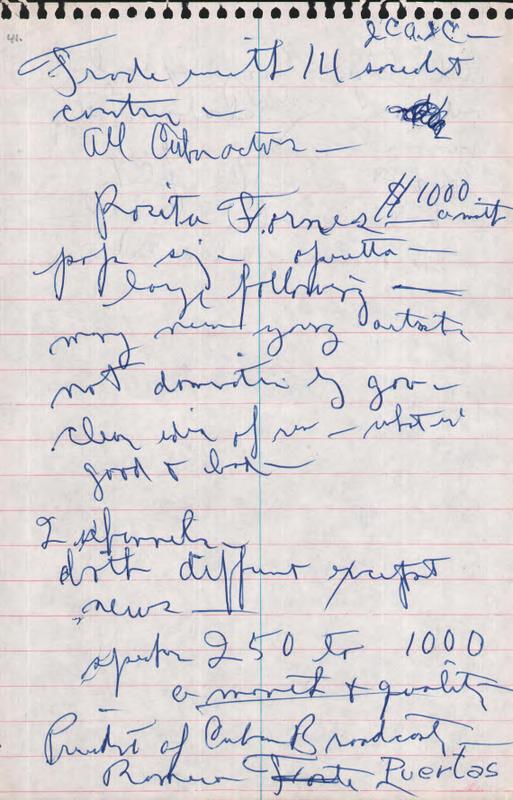 41.
Trade with 14 socialist
countries —
All Cuban actors —
Rosita Fornes $1000
a month
pop sing — operetta —
large following —
many new young artists
not domination by gov —
clear idea of rev — what is
good & bad —
2 channels
both different except
news —
250 to 1000
a month & quality
President of Cuban Broadcast —
Romeu Puertas